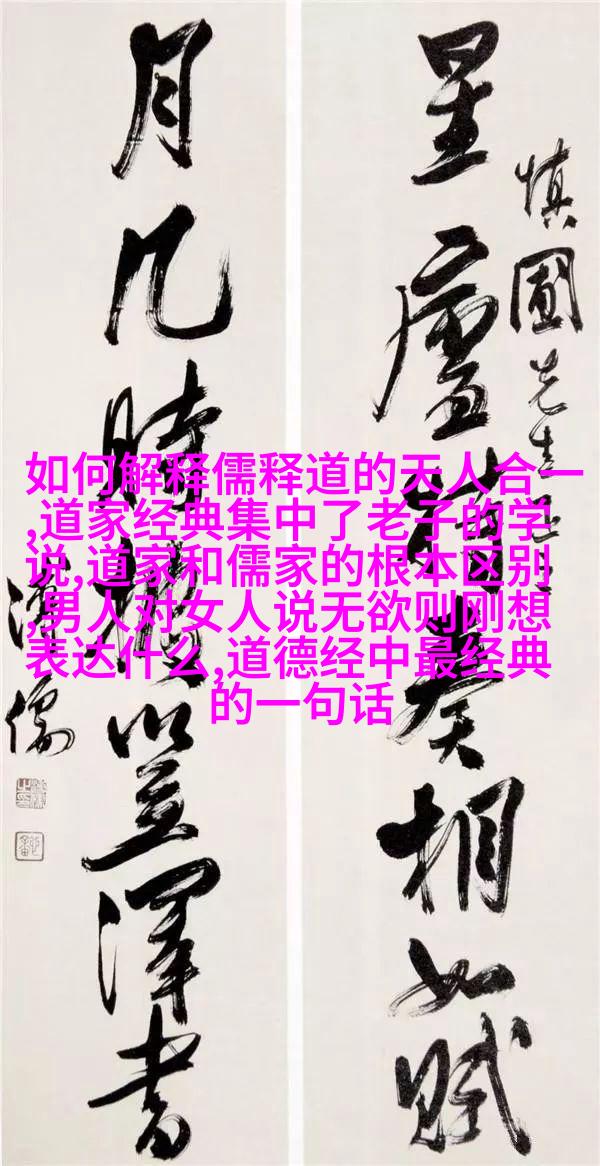 慎圃先生
星廬奏相如賦
月几時笠澤書
溥儒
如何解释儒释道的天人合一
,道家经典集中了老子的学
说,道家和儒家的根本区别
,男人对女人说无欲则刚想
表达什么,道德经中最经典
的一句话